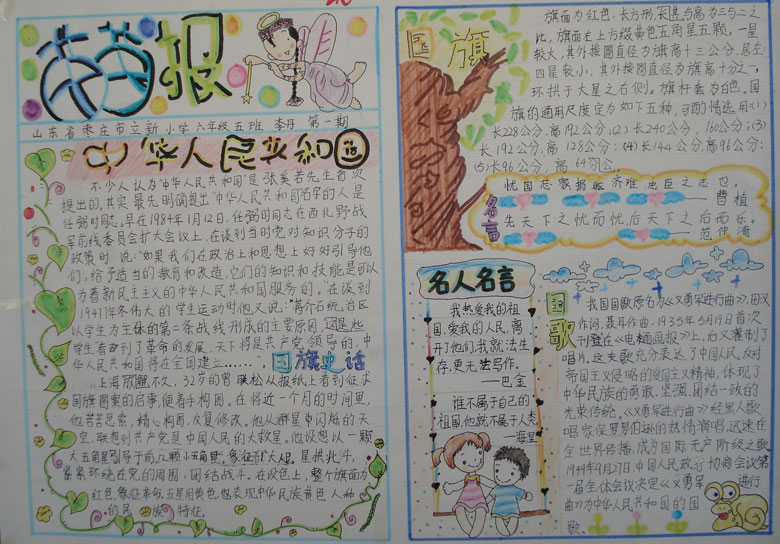 报
山东省枣庄市立新小学六年级五班 李丹 第一期
中华人民共和国
不少人认为"中华人民共和国"是张奚若先生首次
提出的,其实最先明确提出"中华人民共和国"名字的人是
任弼时同志。早在1984年1月12日,任弼时同志在西北野战
军前线委员会扩大会议上,在谈到当时党对知识分子的
政策时说:"如果我们在政治上和思想上好好引导他
们,给予适当的教育和改造,它们的知识和技能是可以
为着新民主主义的中华人民共和国服务的。"在谈到
1947年冬伟大的学生运动时他又说:"蒋介石统治区
以学生为主体的第二条战线形成的主要原因,这是些
学生看到了革命的发展,天下将是共产党领导的,中
华人民共和国将在全国建立……
国旗史话
上海解放不久,32岁的曾联松从报纸上看到征求
国旗图案的启事,便着手构图。在将近一个月的时间里,
他苦苦思索,精心构图,反复修改。他从群星中闪烁的天
空,联想到共产党是中国人民的大救星。他设想以一颗
大五角星引导于前,几颗小五角星,象征广大人民,星拱北斗,
紧紧环绕在党的周围,团结战斗。在设色上,整个旗面为
红色,象征革命,五星用黄色,也表现中华民族黄色人种
的民族特征
国旗
旗面为红色,长方形,长其与高为三与二之
比,旗面左上方缀黄色五角星五颗。一星
较大,其外接圆直径为旗高十三公分,居左;
四星较小,其外接圆直径为旗高十分之一,
环拱于大星之右侧。旗杆套为白色,国
旗的通用尺度定为如下五种,可酌情选用:(1)
长228公分,高192公分;(2)长240公分,160公分;(3)
长192公分,高128公分;(4)长144公分,高96公分;
(5)长96公分,高64公分。
名言
忧国忘家捐躯济难,忠臣之志也。
——曹植
先天下之忧而忧后天下之后而乐。
——范仲淹
名人名言
我热爱我的祖
国,爱我的人民,离
开了他们,我就法生
存,更无法写作。
——巴金
谁不属于自己的
祖国,他就不属于人类
国歌
我国国歌原名为《义勇军进行曲》,田汉
作词,聂耳作曲,1935年5月19日首次
刊登在《电通画报》上,后又灌制了
唱片,这支歌充分表达了中国人民反对
帝国主义侵略的爱国主义精神,体现了
中华民族的勇敢、坚强、团结一致的
光荣传统。《义勇军进行曲》经黑人歌
唱家保罗罗伯逊的热情演唱,迅速在
全世界传播,成为国际无产阶级之歌
1949年9月27日,中国人民政治协商会议第
一届全体会议决定《义勇军进行
曲》为中华人民共和国的国
歌。